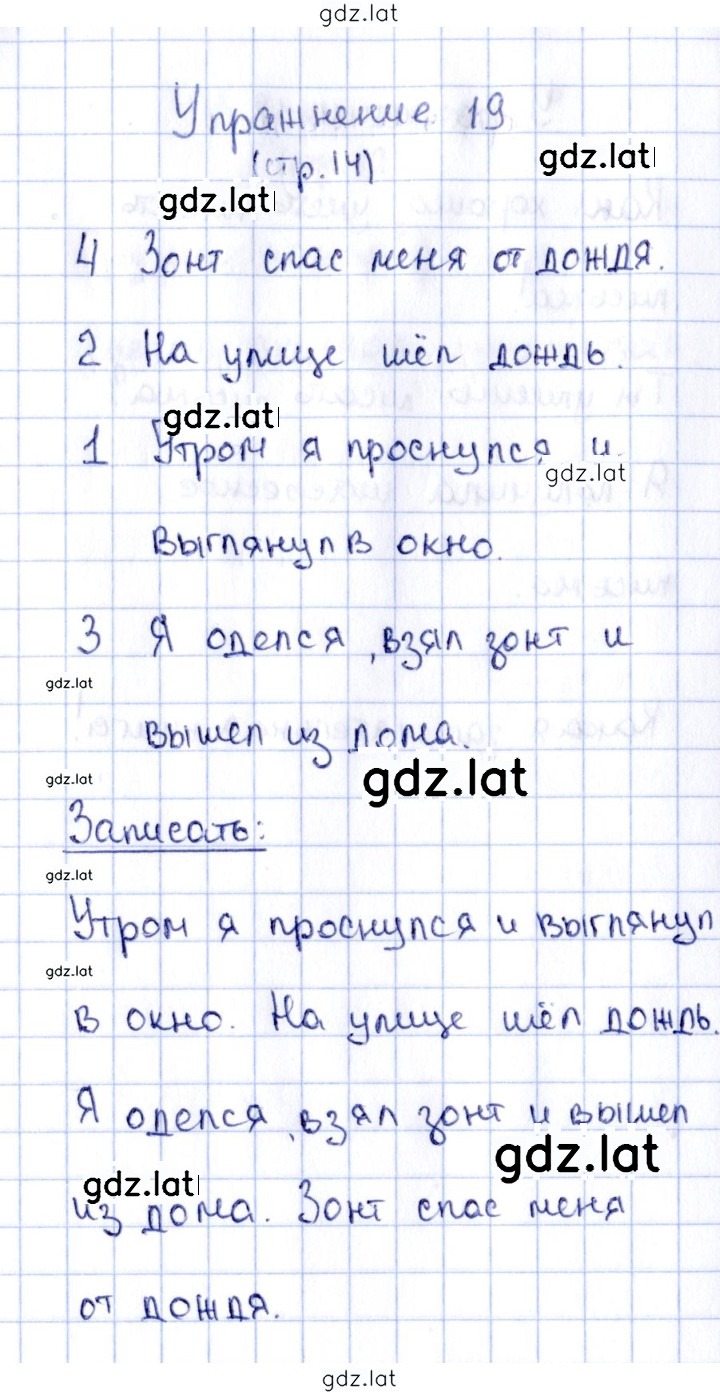 gdz.lat
Упражнение 19
(стр.14)
gdz.lat
gdz.lat
4 Зонт спас меня от дождя.
2 На улице шёл дождь.
gdz.lat
1 Утром я проснулся и
gdz.lat
выглянул в окно.
3 Я оделся, взял зонт и
gdz.lat
вышел из дома.
gdz.lat
gdz.lat
Записать:
gdz.lat
Утром я проснулся и выглянул
gdz.lat
в окно. На улице шёл дождь.
Я оделся, взял зонт и вышел
gdz.lat
gdz.lat
из дома. Зонт спас меня
от дождя.
gdz.lat